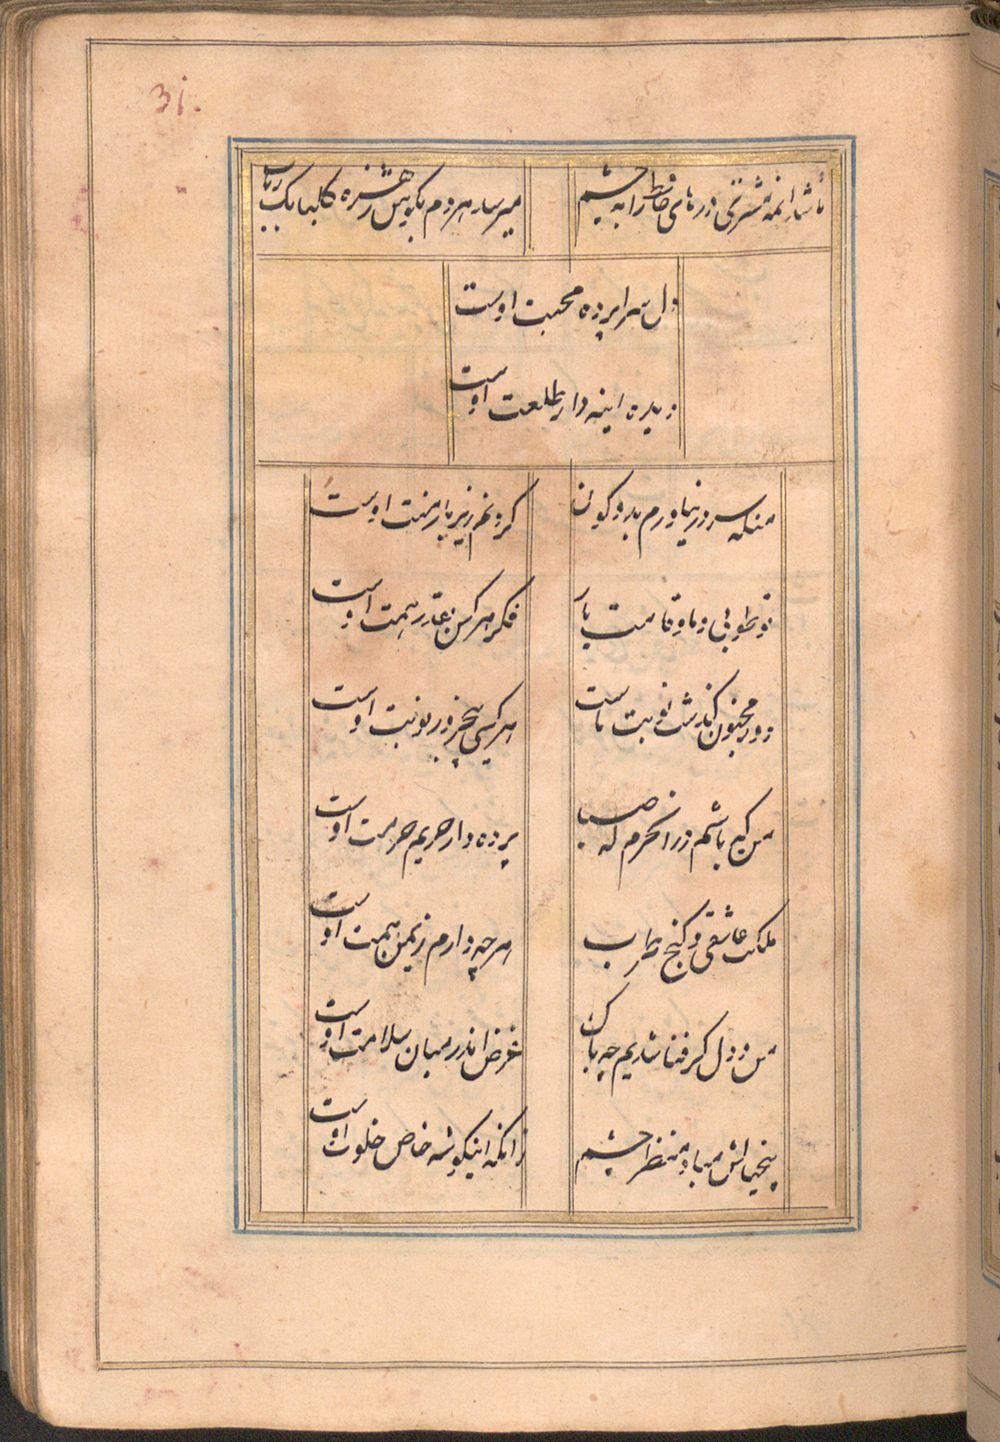 31.
تا شد انمه مشتری درهای حافظ را به چشم
میرسد هر دم بکوش زهره کلبانک رباب
دل سراپرده محبت اوست
دیده اینه دار طلعت اوست
منکه سر در نیاورم بدو کون
کردنم زیر بار منت اوست
تو طوبی و ما و قامت یار
فکر هر کس بقدر همت اوست
دور مجنون کذشت نوبت ماست
هر کسی پنجروزه نوبت اوست
من که باشم در انحرم که صبا
پرده دار حریم حرمت اوست
ملکت عاشقی و کنج طرب
هر چه دارم زیمن همت اوست
من و دل کر فنا شدیم چه باک
غرض اندر میان سلامت اوست
بیخیالش مباد منظر چشم
زانکه اینکوشه خاص خلوت اوست